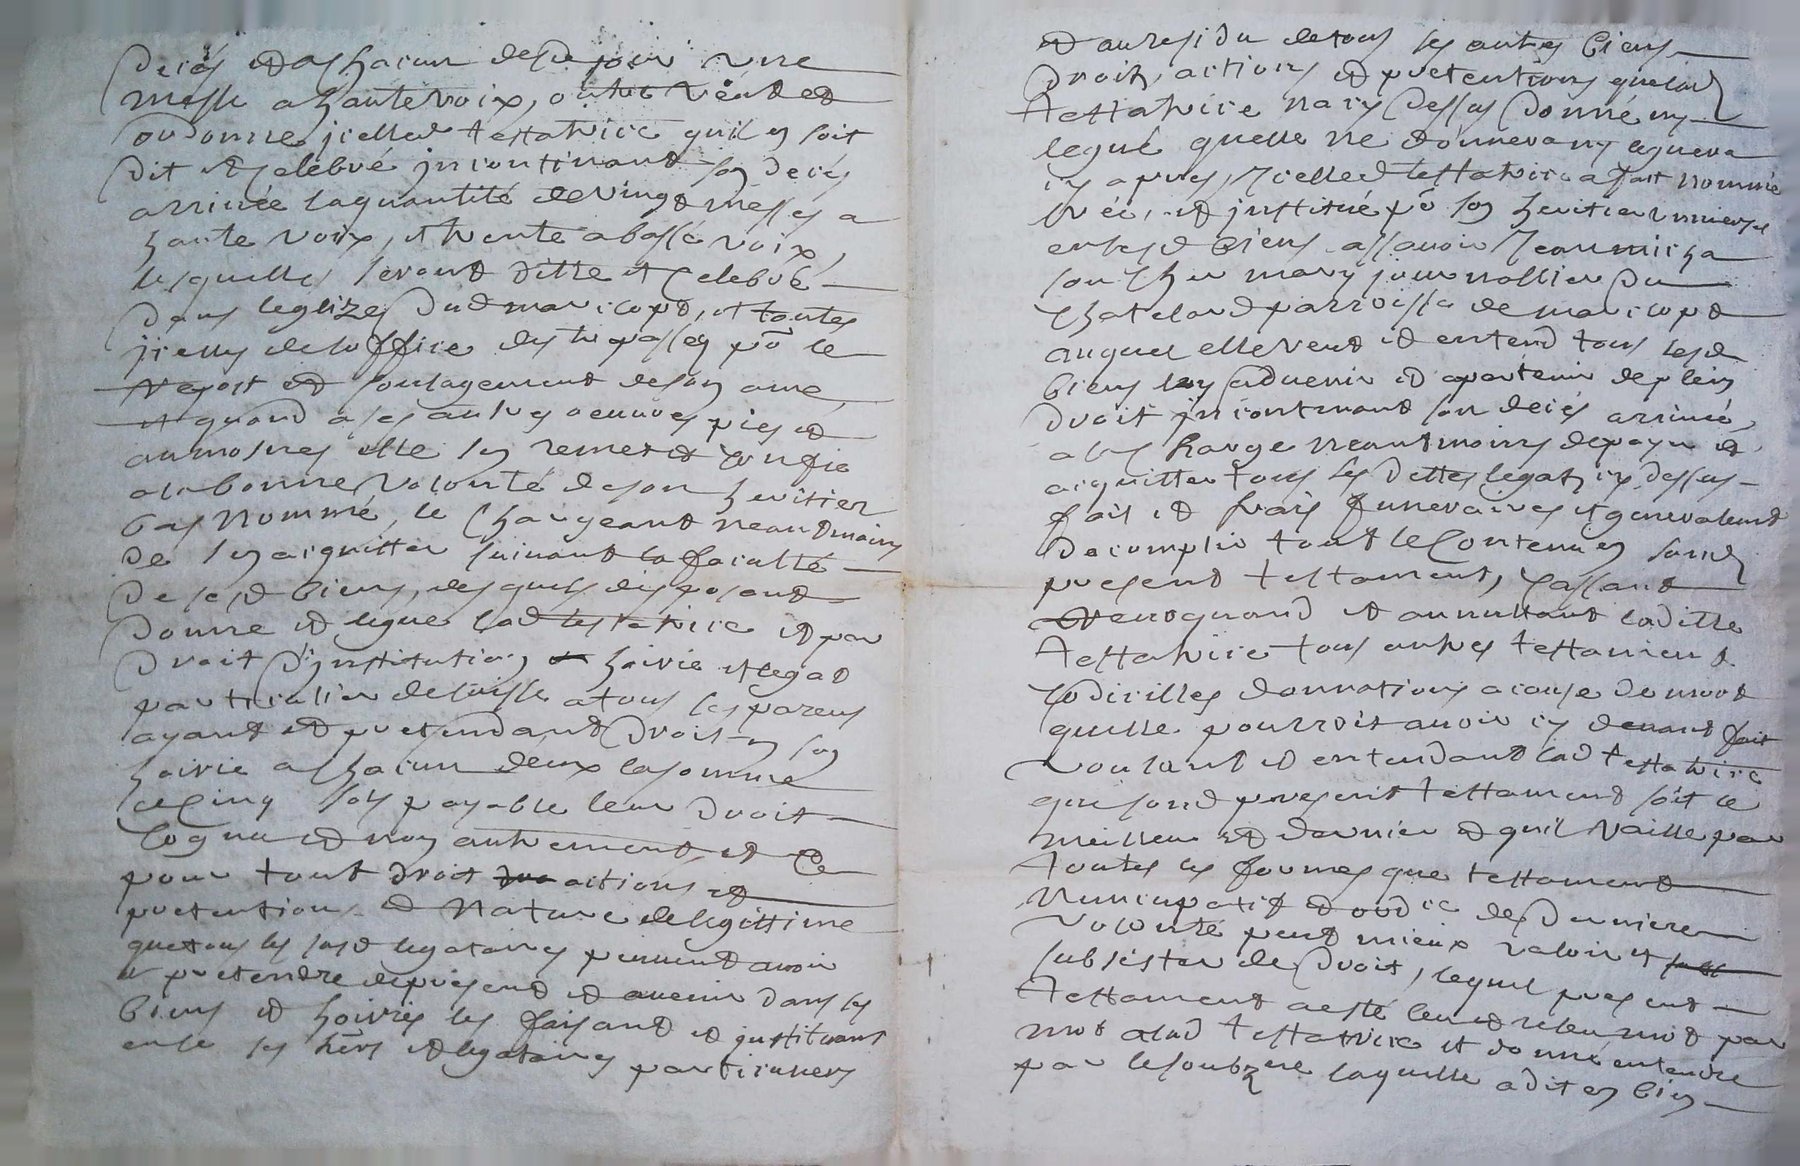 decés et a chacun desd jour une
messe a hautevoix, outre veut et
ordonne jcelled testatrice quil en soit
dit et celebré jncontinant son decés
arrivée laquantité de vingt messes a
haute voix, et trente a basse voix,
lesquelles seront ditte et celebré
dans leglize dud marclopt, et toutes
jcelles de loffice des trepasses po le
repost et soulagement deson ame
et quand a ses autres oeuvres pies et
aumosnes elle sen remet et confie
ala bonne volonté de son heritier
bas nommé, le chargeant neantmoins
de sen acquitter suivant la faculté
de sesd biens, desquels disposant
donne et legue lad testatrice et par
droit d'institution hoirie et legat
particulier delaisse a tous ses parens
ayant et pretendant droit en son
hoirie a chacun deux la somme
de cinq sols payable leur droit
cognu et non autrement, et ce
pour tout droit actions et
pretentions et nature de legittime
quetous les susd legataires peuvent avoir
et pretendre depresent et avenir dans ses
biens et hoiries les faisant et jnstituant
en ce ses hers et legataires particuliers
et au residu de tous ses autres biens
droits, actions et pretentions quelad
testatrice nacy dessus donné ny
legué quelle ne donnera ny leguera
cy apres, jcelled testatrice a fait nommé
créé, et jnstitué po son heritier universel
en sesd biens assavoir Jean micha
son cher mary journallier du
chatelard parroisse de marclopt
auquel elle veut et entend tous sesd
biens luy advenir et apartenir de plein
droit jncontinant son decés arrivé,
ala charge neantmoins de payer et
acquitter tous ses dettes legats cy dessus
fait et frais funeraires et generalement
dacomplir tout le contenu en sond
present testament, cassant
revoquand et annullant laditte
testatrice tous autres testament
codicilles donnations a cause de mort
quelle pourroit avoir cy devant fait
voulant et entendant lad testatrice
que sond present testament soit le
meilleur et dernier et quil vaille par
toutes les formes que testament
nuncupatif et ordce de derniere
volonté peut mieux valoir et
subsister de droit, lequel present
testament a esté leu et releu mot par
mot alad testatrice et donné entendre
par lesoubzne laquelle adit en bien